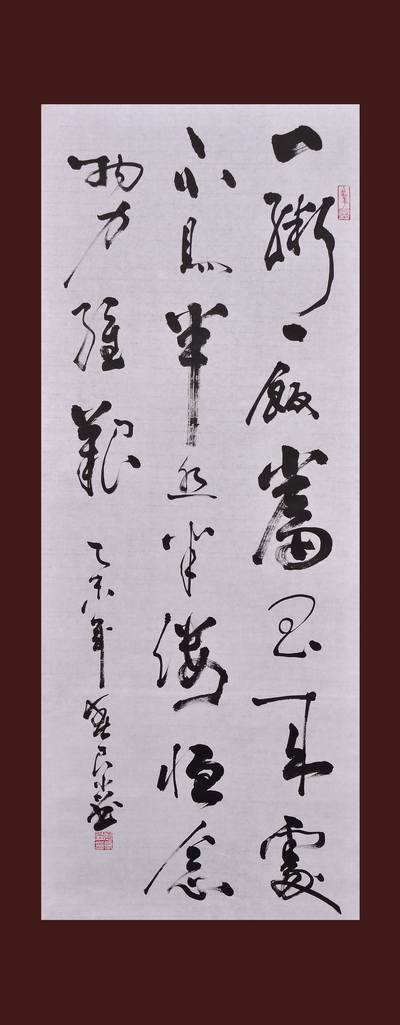 一粥一飯當思来處
不易半丝半縷恒念
物力維艱
乙未年